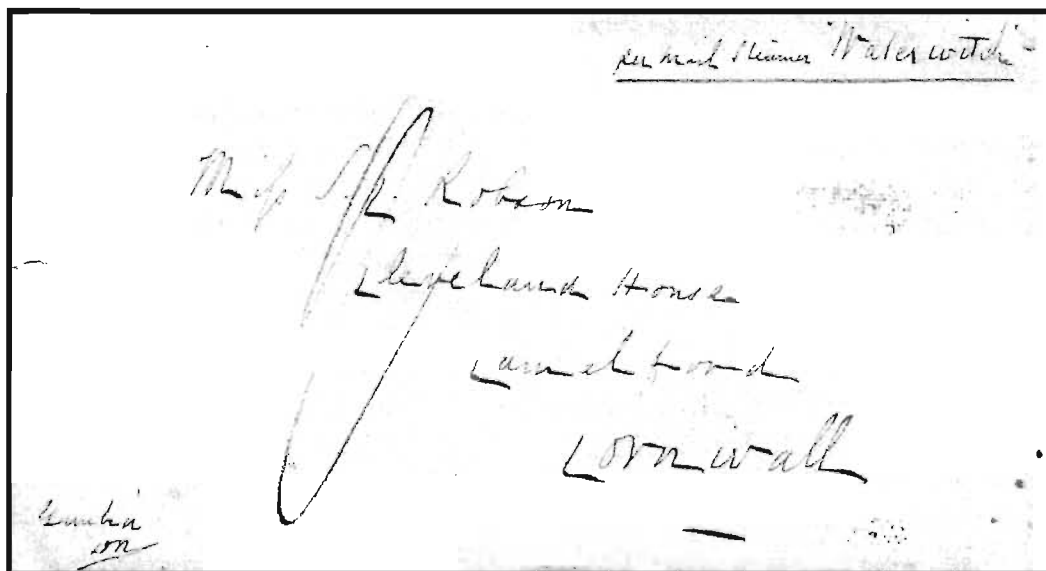 per mail steamer "Waterwitch"
Miss R. Robson
Cleveland House
Camelford
Cornwall